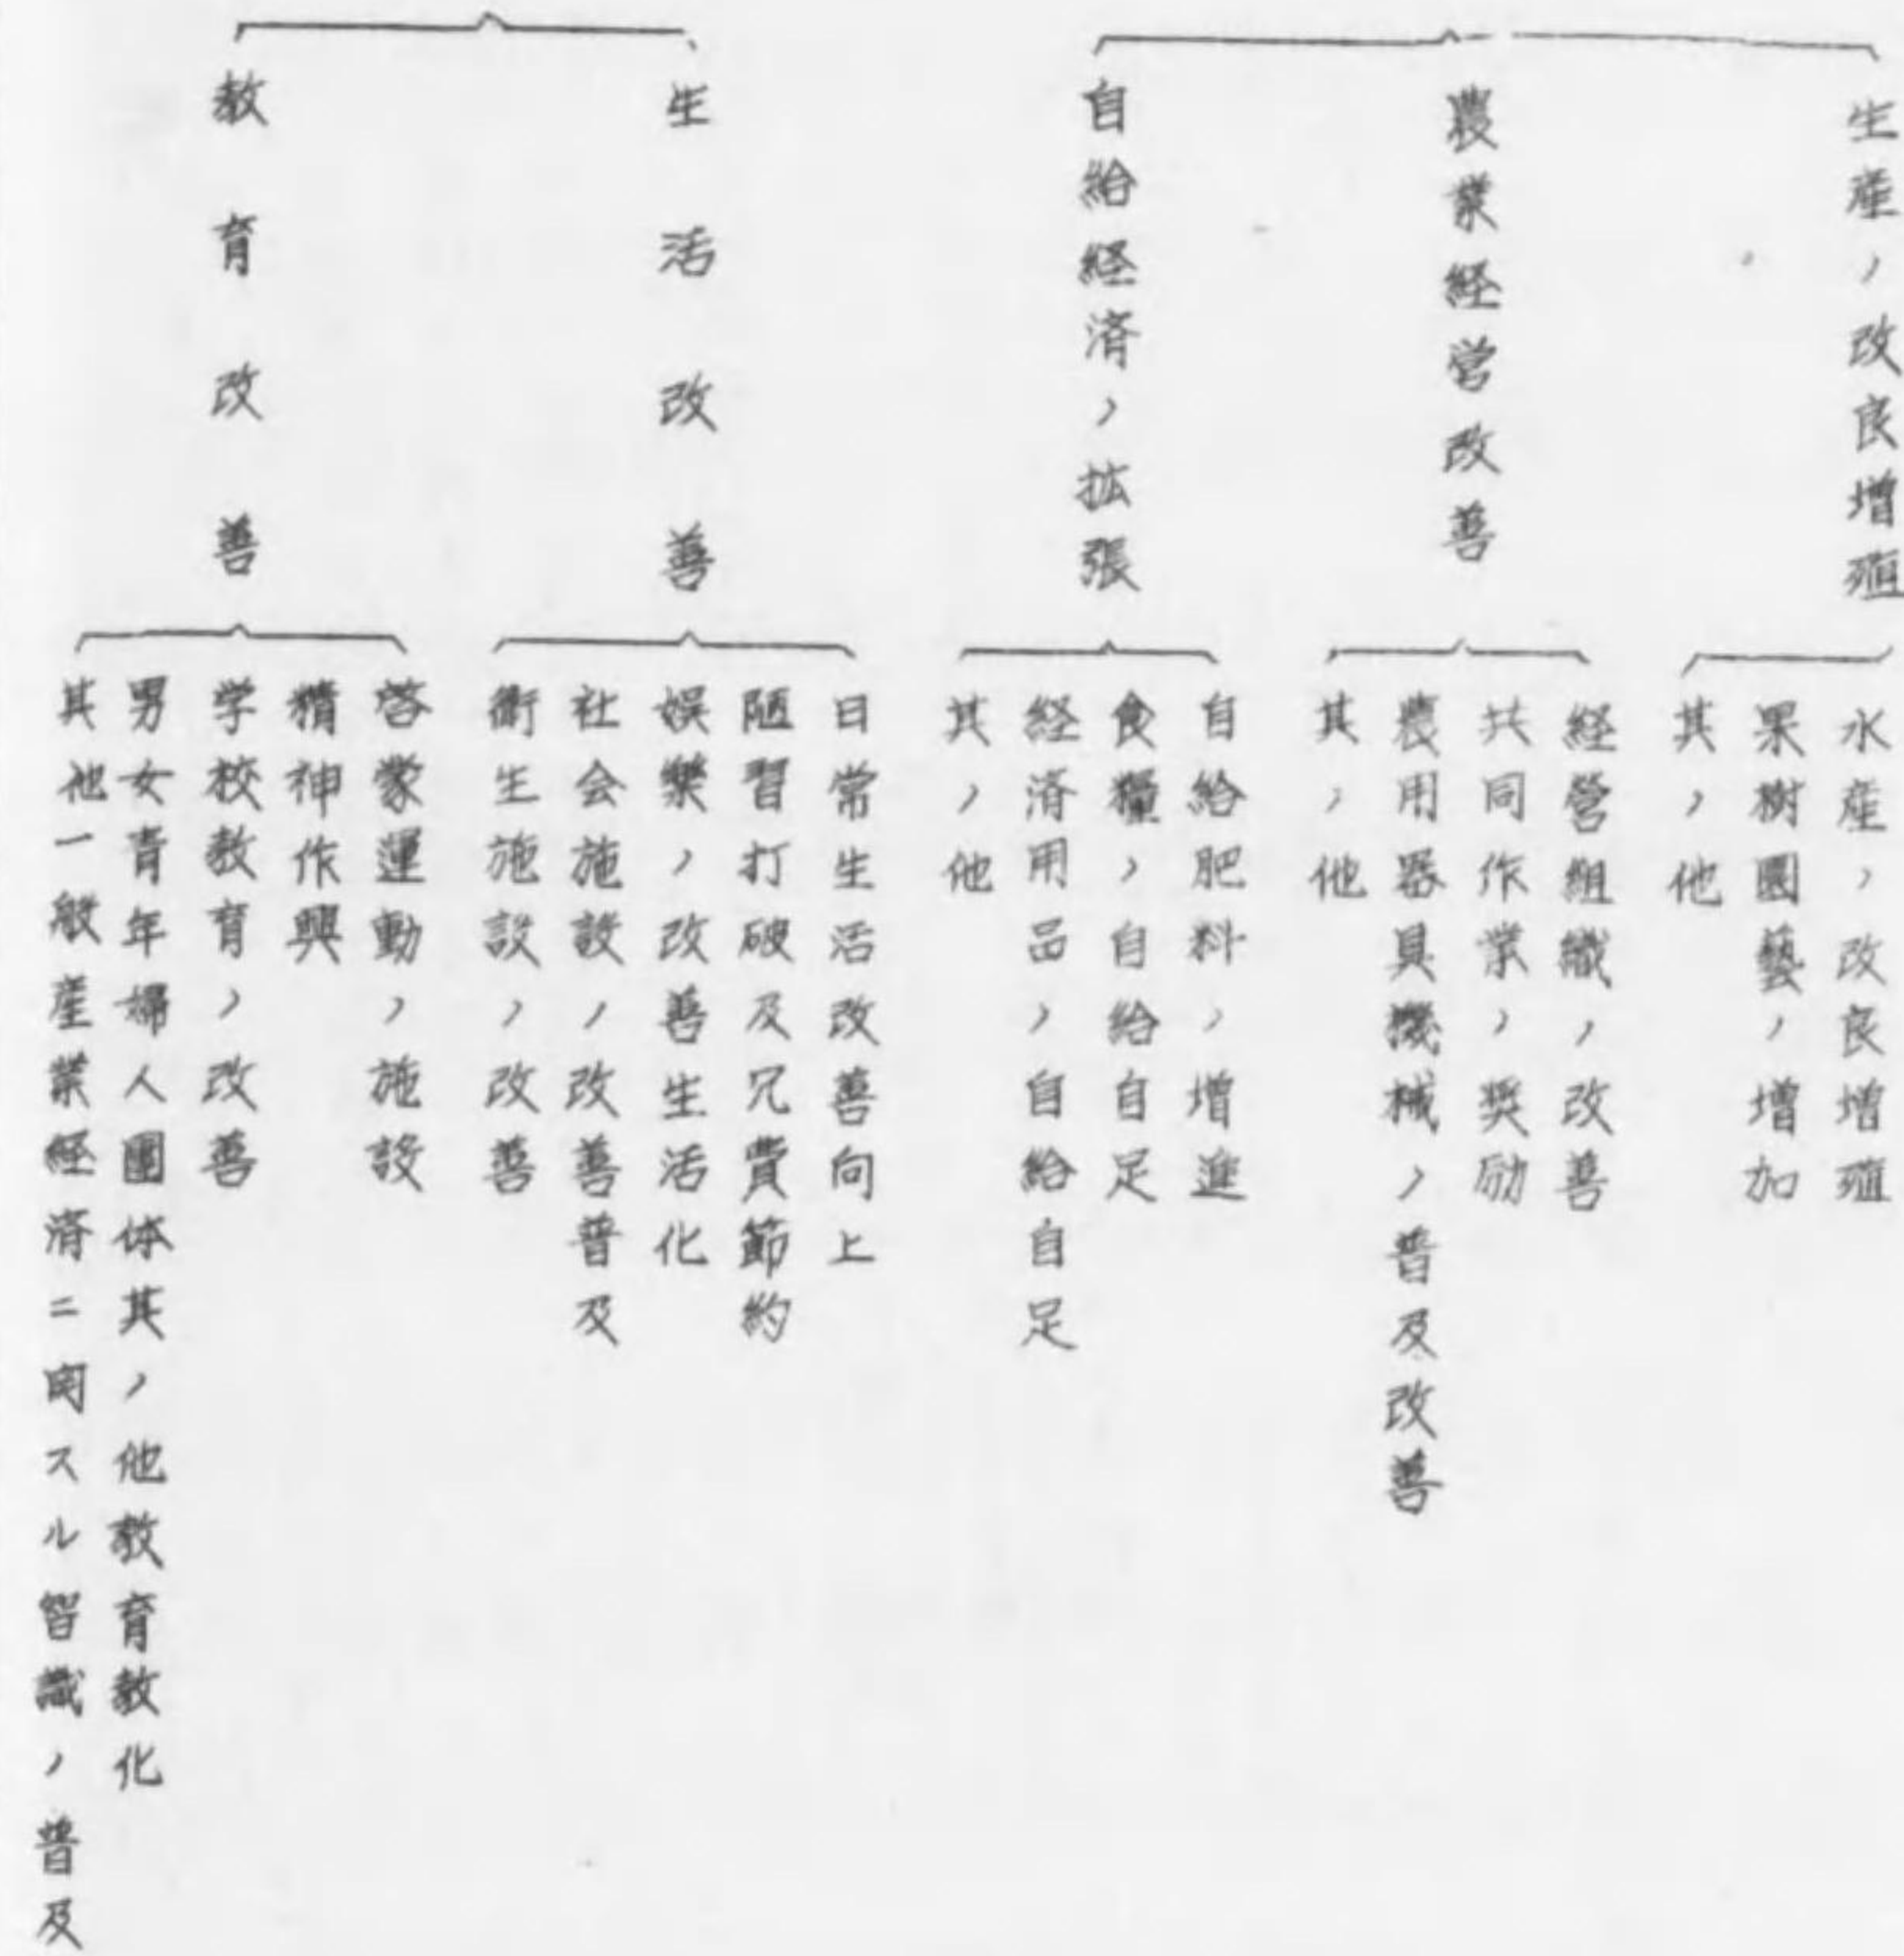 生産ノ改良増殖
水産ノ改良増殖
果樹園藝ノ増加
其ノ他
農業経営改善
経營組織ノ改善
共同作業ノ奨励
農用器具機械ノ普及改善
其ノ他
自給経済ノ拡張
自給肥料ノ増進
食糧ノ自給自足
経済用品ノ自給自足
其ノ他
生活改善
日常生活改善向上
陋習打破及冗費節約
娯樂ノ改善生活化
社会施設ノ改善普及
衛生施設ノ改善
教育改善
啓蒙運動ノ施設
精神作興
学校教育ノ改善
男女青年婦人團体其ノ他教育教化
其他一般産業経済ニ関スル智識ノ普及